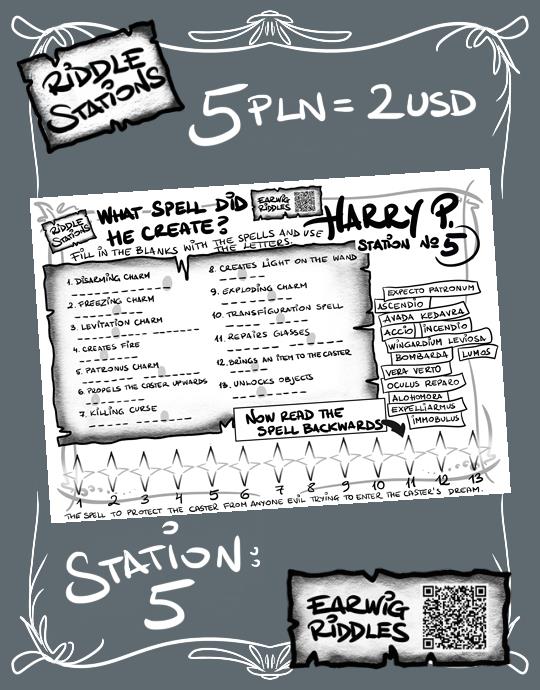 RIDDLE
STATIONS
5 PLN = 2 USD
RIDDLE
STATIONS
WHAT SPELL DID
HE CREATE?
EARWIG
RIDDLES
HARRY P.
STATION No 5
FILL IN THE BLANKS WITH THE SPELLS AND USE
THE LETTERS:
1. DISARMING CHARM
2. FREEZING CHARM
3. LEVITATION CHARM
4. CREATES FIRE
5. PATRONUS CHARM
6. PROPELS THE CASTER UPWARDS
7. KILLING CURSE
8. CREATES LIGHT ON THE WAND
9. EXPLODING CHARM
10. TRANSFIGURATION SPELL
11. REPAIRS GLASSES
12. BRINGS AN ITEM TO THE CASTER
13. UNLOCKS OBJECTS
EXPECTO PATRONUM
ASCENDIO
AVADA KEDAVRA
ACCIO INCENDIO
WINGARDIUM LEVIOSA
BOMBARDA LUMOS
VERA VERTO
OCULUS REPARO
ALOHOMORA
EXPELLIARMUS
IMMOBULUS
NOW READ THE
SPELL BACKWARDS
1 2 3 4 5 6 7 8 9 10 11 12 13
THE SPELL TO PROTECT THE CASTER FROM ANYONE EVIL TRYING TO ENTER THE CASTER'S DREAM.
STATION:
5
EARWIG
RIDDLES